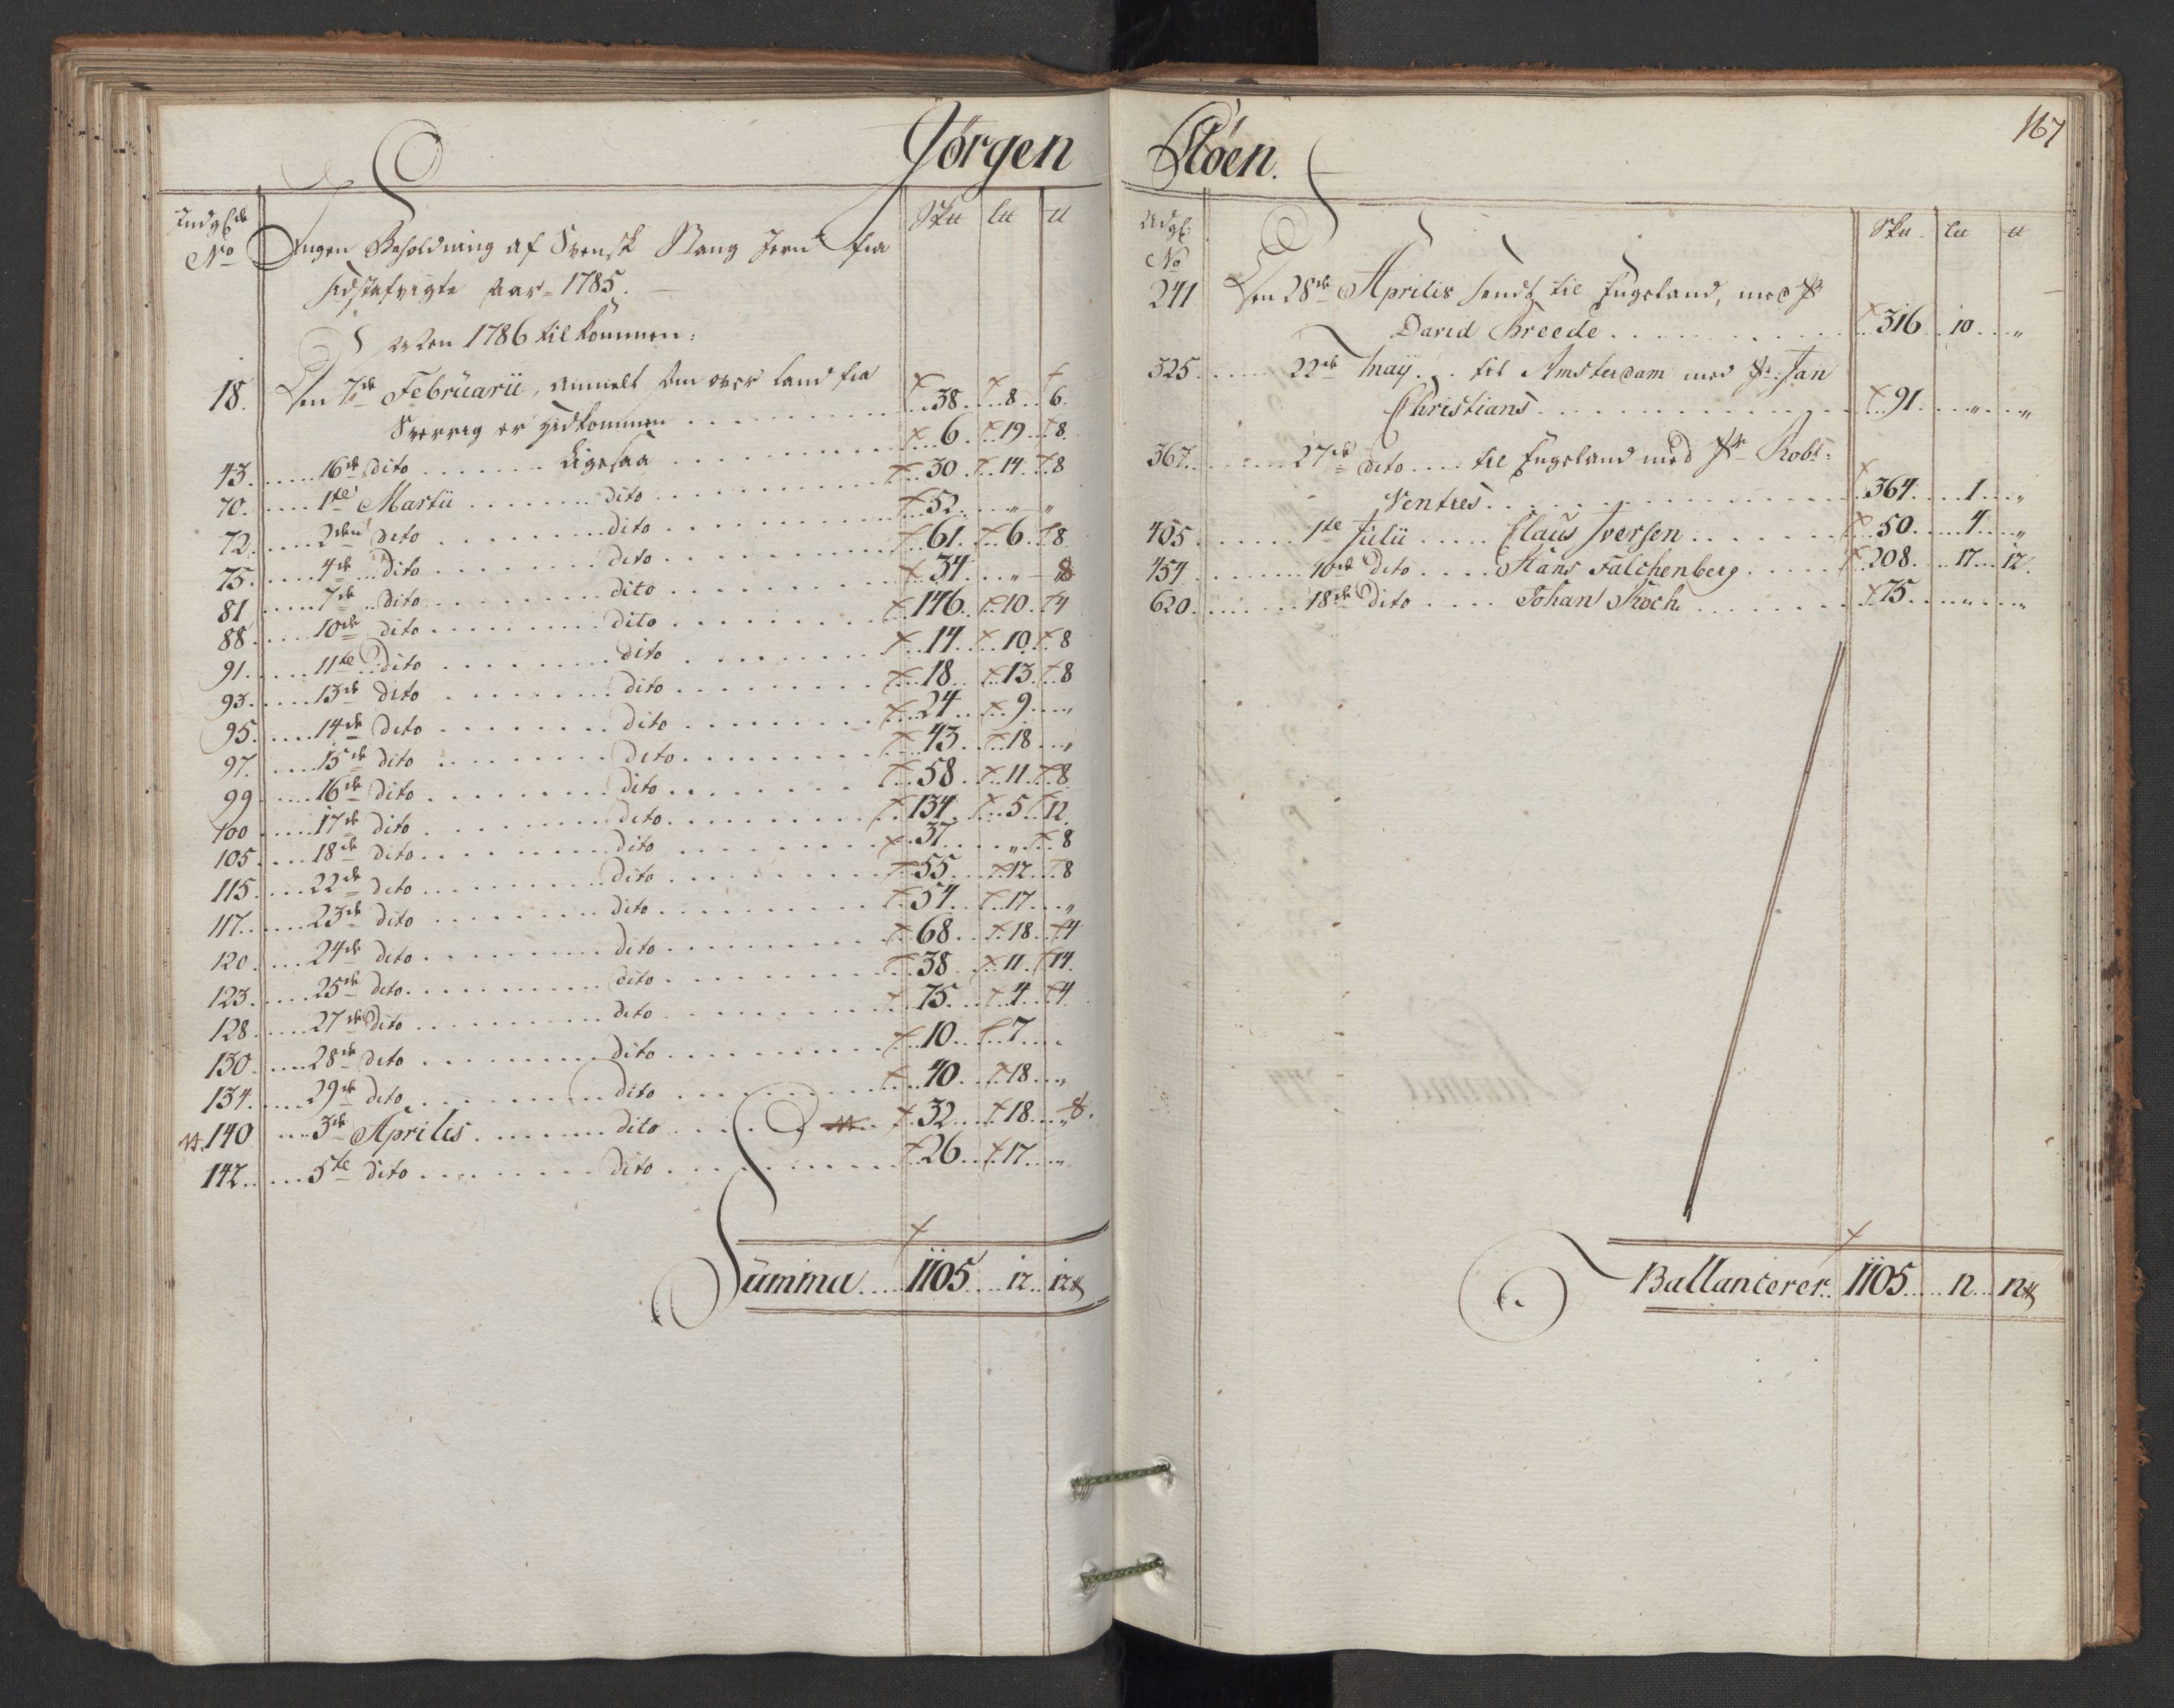 Jörgen
Indg:de No Sk℔ L℔ ℔
Ingen Beholdning af Svensk Stang Jern fra
sidstafvigte Aar 1785.
1786 tilkommen:
18. Den 7de Februarii, anmelt som over land fra
Sverrig er hidkommen 38. 8. 6.
43. 16de dito Ligesaa 6. 19. 8.
70. 1te Martii dito 30. 14. 8
72. 2den dito dito 52. „ „
75. 4de dito dito 61. 6. 8
81 7de dito dito 34. „ 8
88. 10de dito dito 146. 10. 4
91. 11te dito dito 14. 10. 8
93. 13de dito dito 18. 13. 8
95. 14de dito dito 24. 9. „
97. 15de dito dito 43. 18. „
99. 16de dito dito 58. 11. 8
100 17de dito dito 134. 5. 12.
105. 18de dito dito 37. „ 8
115. 22de dito dito 55. 12. 8
117. 23de dito dito 54. 17. „
120. 24de dito dito 68. 18. 4
123. 25de dito dito 38. 11. 14.
128. 27de dito dito 75. 4. 4
130. 28de dito dito 10. 7. „
134. 29de dito dito 40. 18. „
140 3de Aprilis dito 32. 18. „
142. 5te dito dito 26. 17. „
Summa 1105. 12. 12
167
Stöen.
Udg: No Sk℔ L℔ ℔
241 Den 28de Aprilis sendt til Engeland, med Sr
David Breede 316. 10. „
325. 22de Maÿ til Amsterdam med Sr Jan
Christians 91. „ „
367. 27de dito til Engeland med Sr Robt:
Ventres 364. 1. „
405 1te Julii Claus Iversen 50. 4. „
454 10de dito Hans Falchenberg 208. 17. 12.
620. 18de dito Johan Koch 75. „ „
Ballancerer 1105. 12. 12